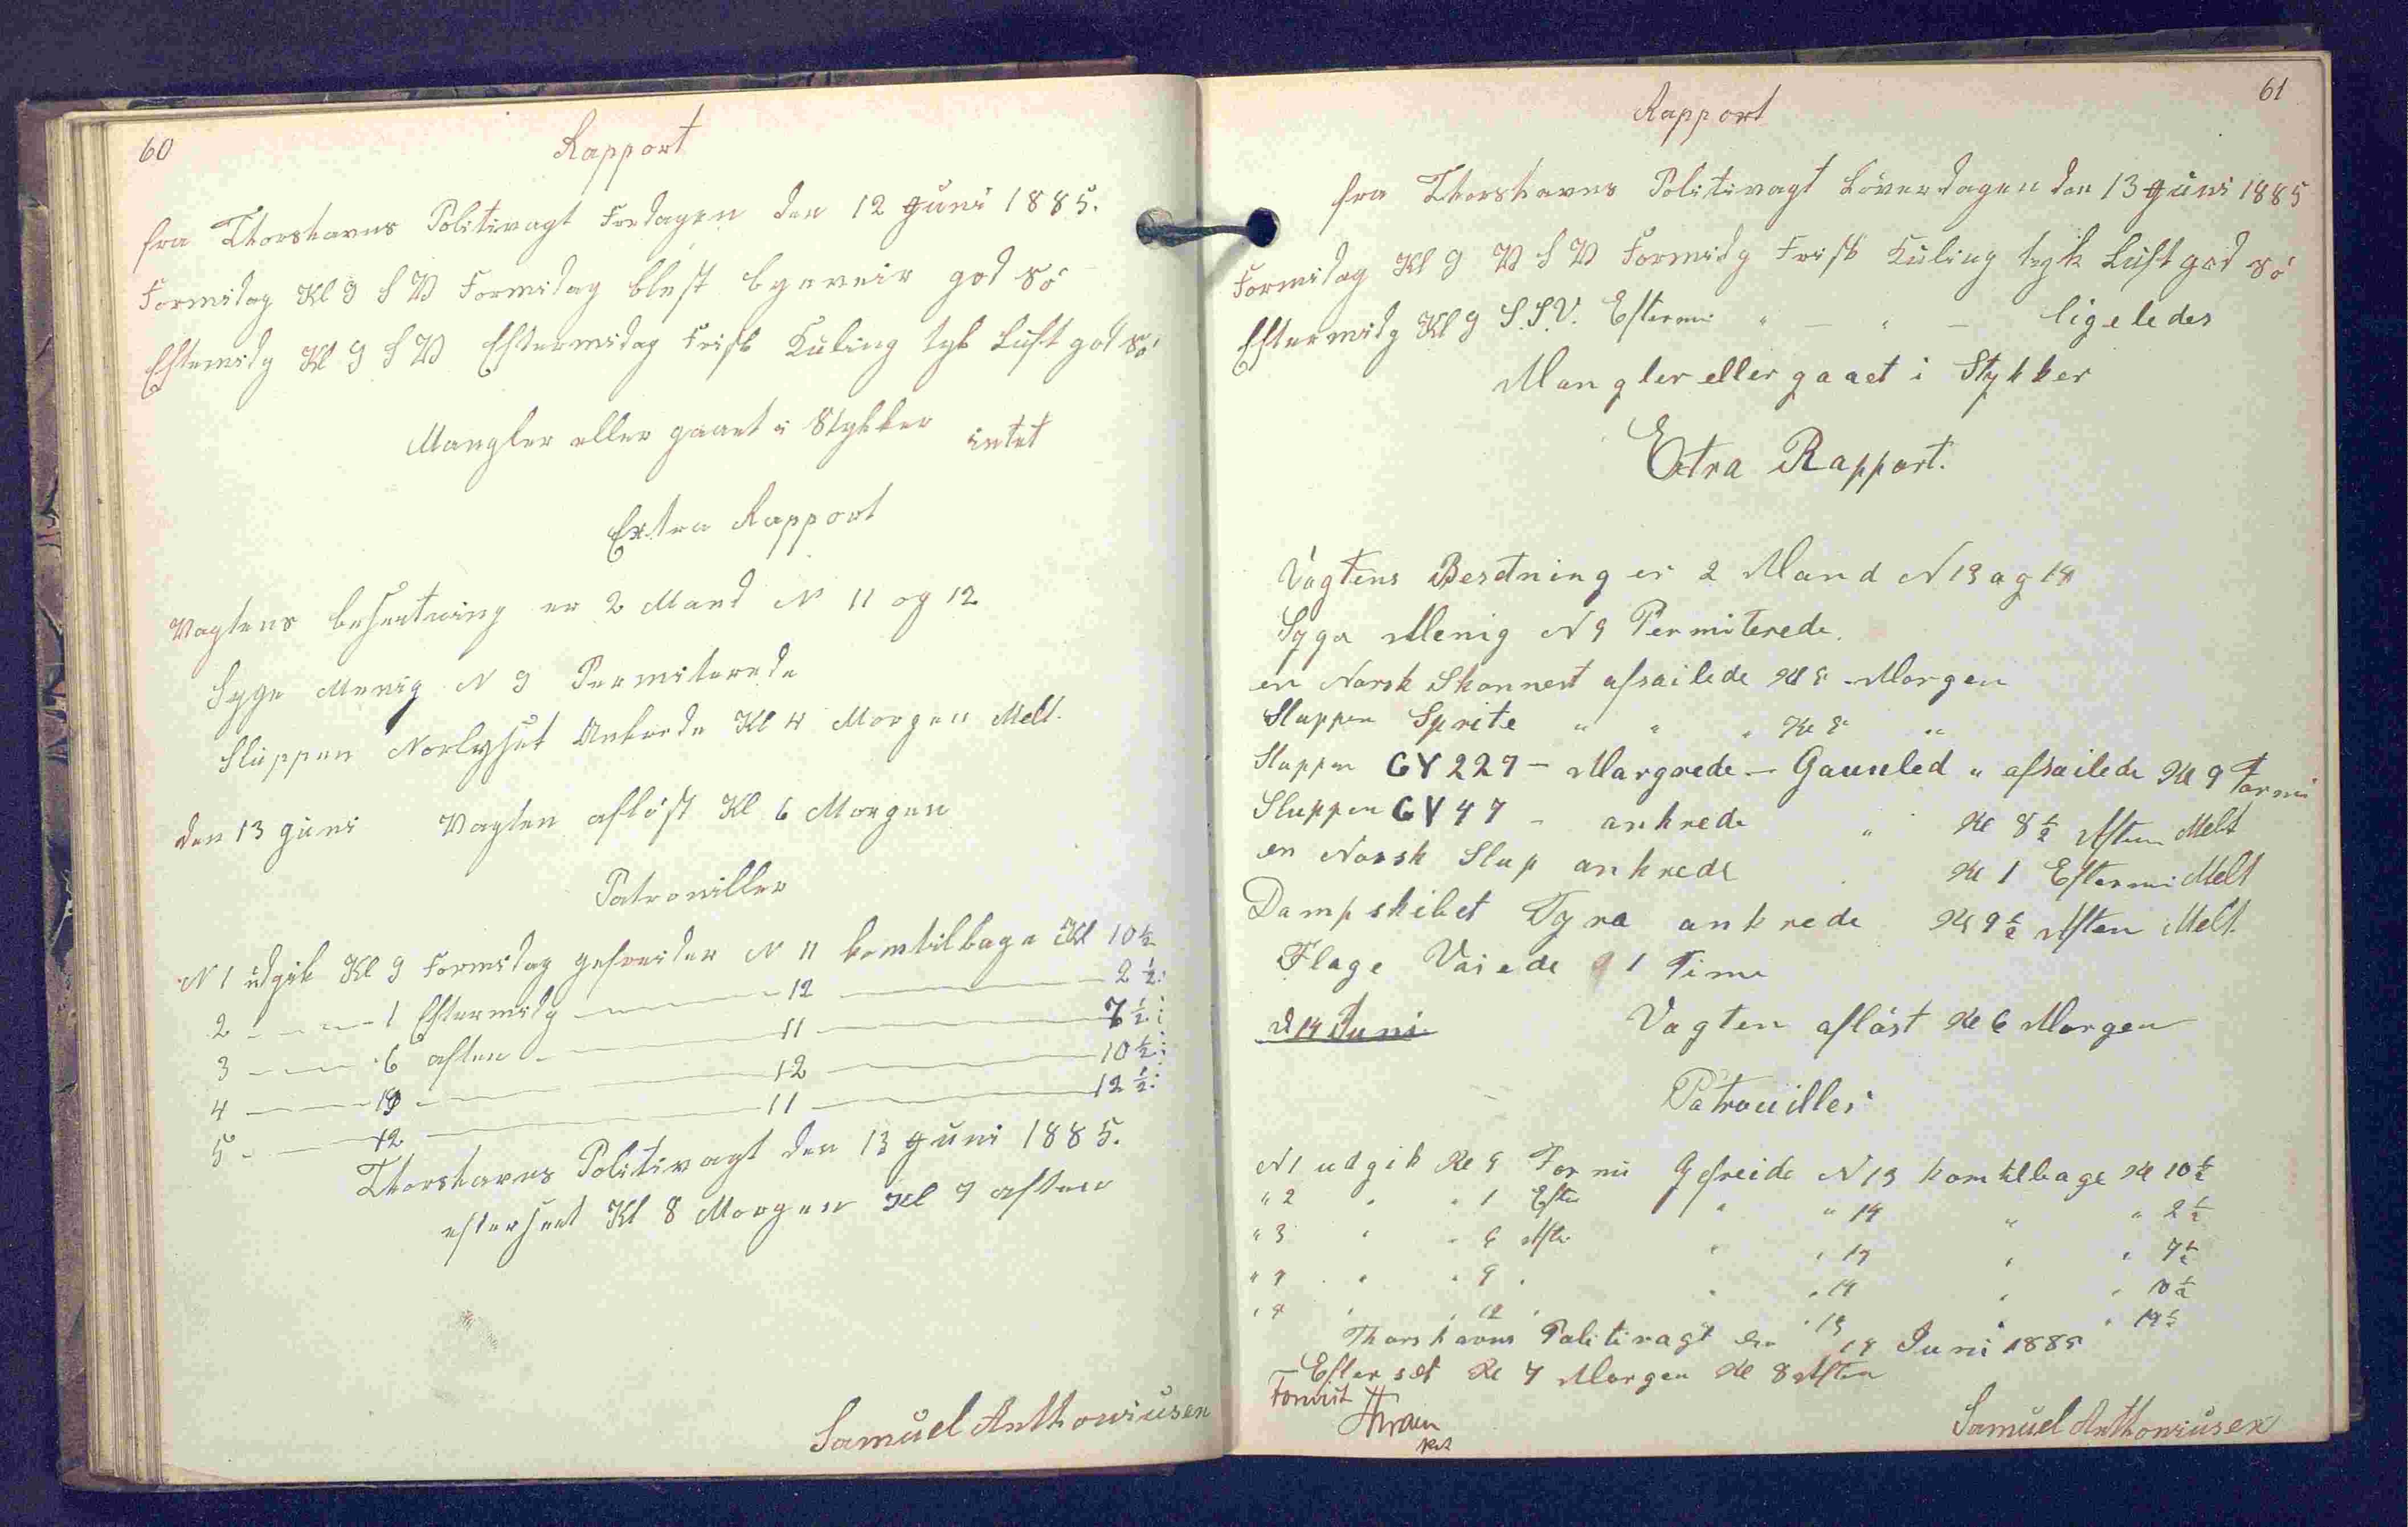 60
Rapport
fra Thorshavns Politivagt Fredagen den 12 Juni 1885.
Formidag Kl 9 S V Formidag blest bgeveir god Sö
Eftermidg Kl 9 S V Eftermidag Frisk Kuling tyk Luft god Sö
Mangler eller gaaet i Stykker intet
Extra Rapport
Vagtens besætning er 2 Mand N 11 og 12
Syge Menig N 9 Permiterede
Sluppen Norlyset Ankrede Kl 4 Morgen Melt.
den 13 Juni Vagten aflöst Kl 6 Morgen
Patrouiller
N 1 udgik Kl 9 Formidag gefreider N 11 kom tilbage Kl 10 ½
2 — — — 1 Eftermidg — 12 — 2 ½
3 — — 6 aften — 11 — 7 ½
4 — — — 12 — 10 ½
5 — — 12 — 11 — 12 ½
Thorshavns Politivagt den 13 Juni 1885.
efterseet Kl 8 Morgen Kl 9 aften
Samuel Anthoniusen
61
Rapport
fra Thorshavns Politivagt Löverdagen den 13 Juni 1885
Formidag Kl 9 V S V Formidg Frisk Kuling tyk Luft god Sö
Eftermidg Kl 9 S.S.V. Eftermi " — " — ligeledes
Mangler eller gaaet i Stykker
Extra Rapport.
Vagtens Besetning er 2 Mand N 13 og 14
Syge Menig N 9 Permiterede.
en Norsk Skonnert afsailede Kl 8 Morgen
Sluppen Sprite " " " Kl 8 "
Sluppen GY 227 – Margrede – " afsailede Kl 9 Formi
Sluppen GY 47 – ankrede " Kl 8 ½ Aften Melt
en Norsk Slup ankrede Kl 1 Eftermi Melt
Dampskibet Tyra ankrede Kl 9 ½ Aften Melt.
Flage Vaiede 1 Time
d 14 Juni Vagten aflöst Kl 6 Morgen
Patrouiller
N 1 udgik Kl 9 Formi Gefreide N 13 kom tilbage Kl 10 ½
" 2 " " 1 Efter " " 14 " " 2 ½
" 3 " " 6 Aften " " 13 " " 7 ½
" 4 " " 9 " " " 14 " " 10 ½
" 5 " " 12 " " " 13 " "
Thorshavns Politivagt den 14 Juni 1885
Efterset Kl 7 Morgen Kl 8 Aften
Samuel Anthoniusen